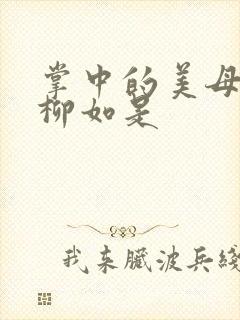 掌中的美母
柳如是
我来臧波兵线